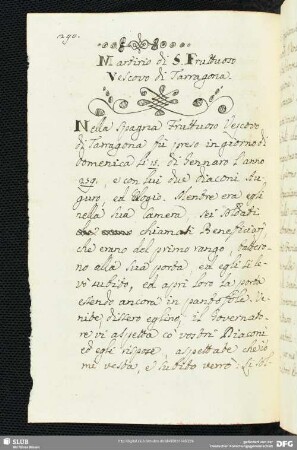 290.
Martirio di S. Fruttuoso
Vescovo di Tarragona.
Nella Spagna Fruttuoso Vescovo
di Tarragona fù preso in giorno di
domenica li 15. di Gennaro l'anno
259. e con lui due Diaconi Au-
guro, ed Elogio. Mentre era egli
nella sua camera, sei soldati
chiamati Beneficiarj
che erano del primo rango, batter-
no alla sua porta, ed egli si le-
vò subito, ed aprì loro la porta
essendo ancora in pantofole. Ve-
nite, dissero eglino, il Governato-
re vi aspetta cò vostri Diaconi
ed egli rispose, aspettate che io
mi vesta, e subito verrò.
SLUB
Wir führen Wissen.
gefördert von der
DFG